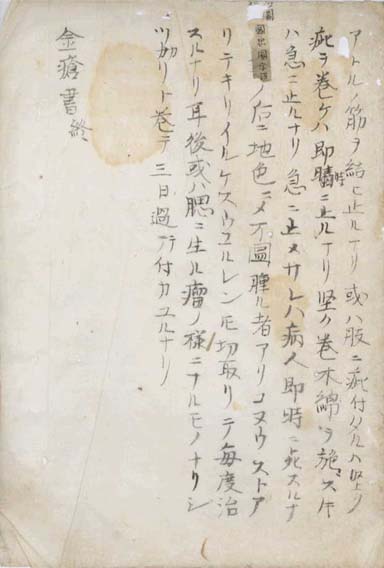 アトルノ筋ヲ結ヒ止ルナリ或ハ肢ニ疵付ハ堅ク
疵ヲ巻ケハ即時ニ止ルナリ堅ク巻木綿ヲ施ス
ハ急ニ止ルナリ急ニ止メサレハ病人即時ニ死スルナ
ノ后ニ地色ニメ不圓腫ル者アリ
リテキリイルケスウユルレンモ切取リテ毎度治
スルナリ耳後或ハ腮ニ生ル瘤ノ様ニナルモノナリシ
ツカリト巻テ三日過テ付カユルナリ
金瘡書終